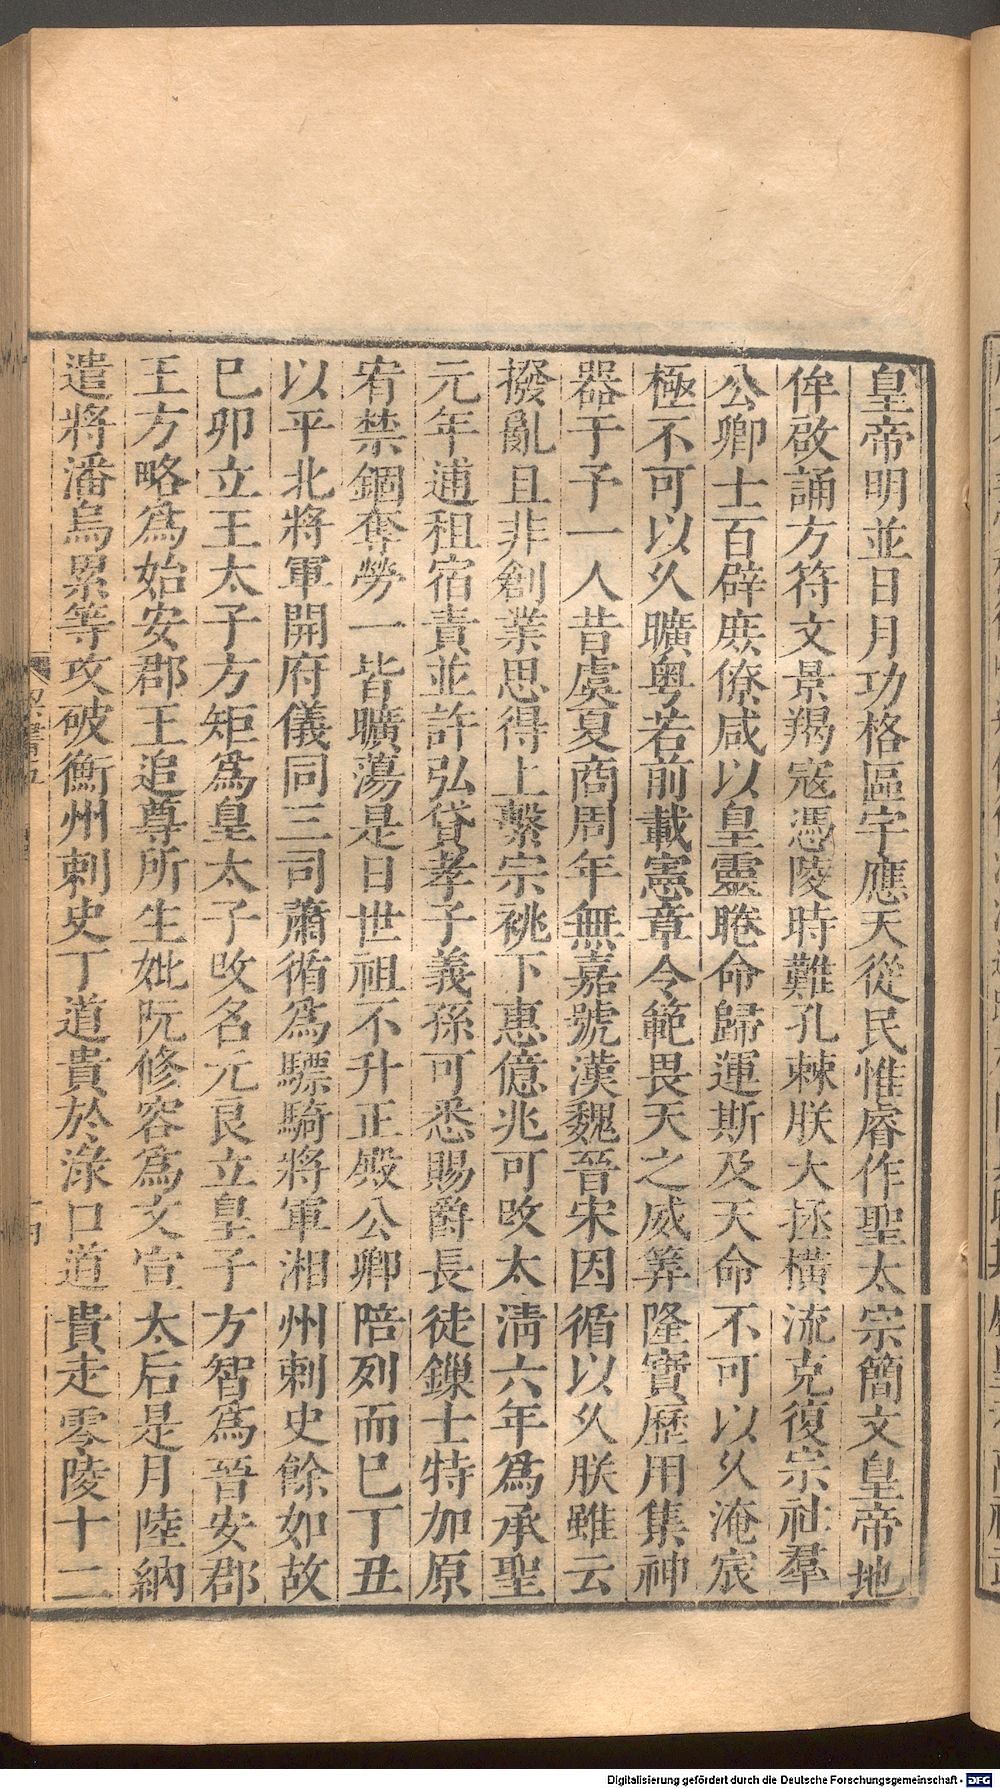 皇帝明並日月功格區宇應天從民惟睿作聖太宗簡文皇帝地
侔啟誦方符文景羯寇憑陵時難孔棘朕大拯橫流克復宗社羣
公卿士百辟庶僚咸以皇靈睠命歸運斯及天命不可以久淹宸
極不可以久曠粤若前載憲章令範畏天之威筭隆寶歷用集神
器于予一人昔虞夏商周年無嘉號漢魏晉宋因循以久朕雖云
撥亂且非創業思得上繫宗祧下惠億兆可改太清六年爲承聖
元年逋租宿責並許弘貸孝子義孫可悉賜爵長徒鏁士特加原
宥禁錮奪勞一皆曠蕩是日世祖不升正殿公卿陪列而巳丁丑
以平北將軍開府儀同三司蕭循爲驃騎將軍湘州刺史餘如故
巳卯立王太子方矩爲皇太子改名元良立皇子方智爲晉安郡
王方略爲始安郡王追尊所生妣阮修容爲文宣太后是月陸納
遣將潘烏累等攻破衡州刺史丁道貴於淥口道貴走零陵十二